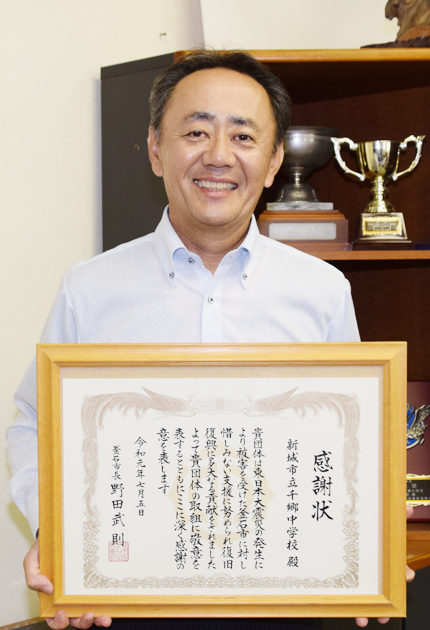 感謝状
新城市立千郷中学校 殿
貴団体は東日本大震災の発生に
より被害を受けた釜石市に対し
惜しみない支援に努められ復旧
復興に多大なる貢献をされました
よって貴団体の取組に敬意を
表するとともにここに深く感謝の
意を表します
令和元年七月五日
釜石市長 野田武則